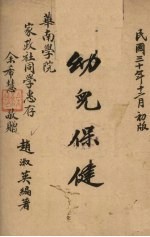 民國三十年十二月初版
幼兒保健
趙淑英編著
華南學院
家政社同學惠存
余希慧敬贈